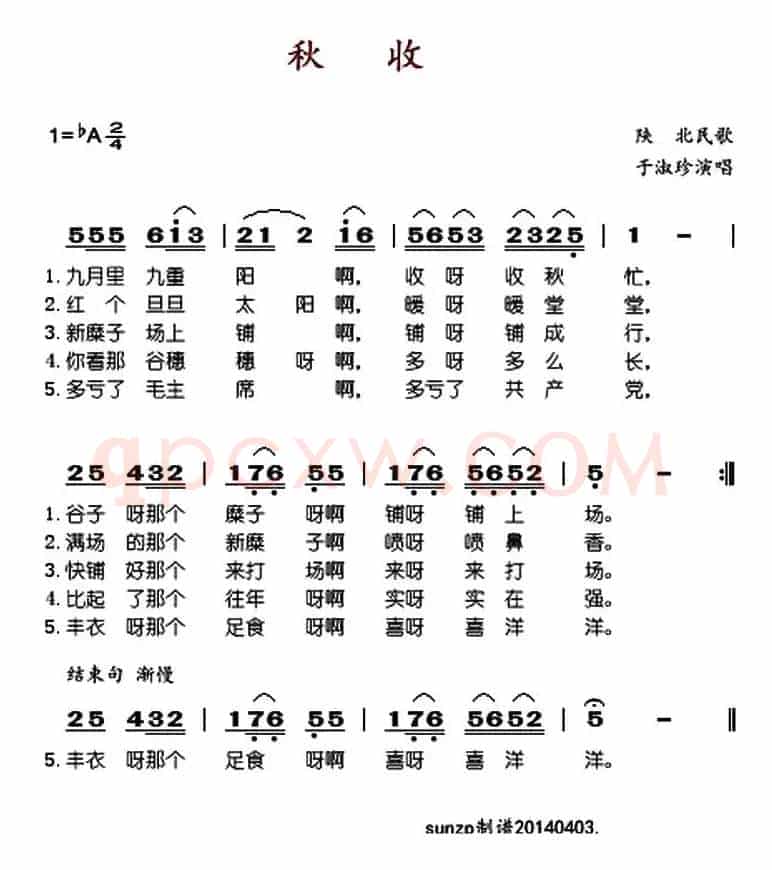 秋 收
1=♭A 2/4 陕 北民歌
于淑珍演唱
555 6i3 | 21 2 i6 | 5653 2325 | 1 - |
1.九月里 九重 阳 啊, 收 呀 收 秋 忙,
2.红 个 旦旦 太 阳 啊, 暖 呀 暖 堂 堂,
3.新糜子 场上 铺 啊, 铺 呀 铺 成 行,
4.你看那 谷穗 穗 呀 啊, 多 呀 多 么 长,
5.多亏了 毛主 席 啊, 多亏了 共 产 党,
qpcxw.COM
25 432 | 176 55 | 176 5652 | 5 - :||
1.谷子 呀那个 糜子 呀啊 铺呀 铺 上 场。
2.满场 的那个 新糜 子啊 喷呀 喷 鼻 香。
3.快铺 好那个 来打 场啊 来呀 来 打 场。
4.比起 了那个 往年 呀啊 实呀 实 在 强。
5.丰衣 呀那个 足食 呀啊 喜呀 喜 洋 洋。
结束句 渐慢
25 432 | 176 55 | 176 5652 | 5 - ||
5.丰衣 呀那个 足食 呀啊 喜呀 喜 洋 洋。
sunzp制谱20140403.